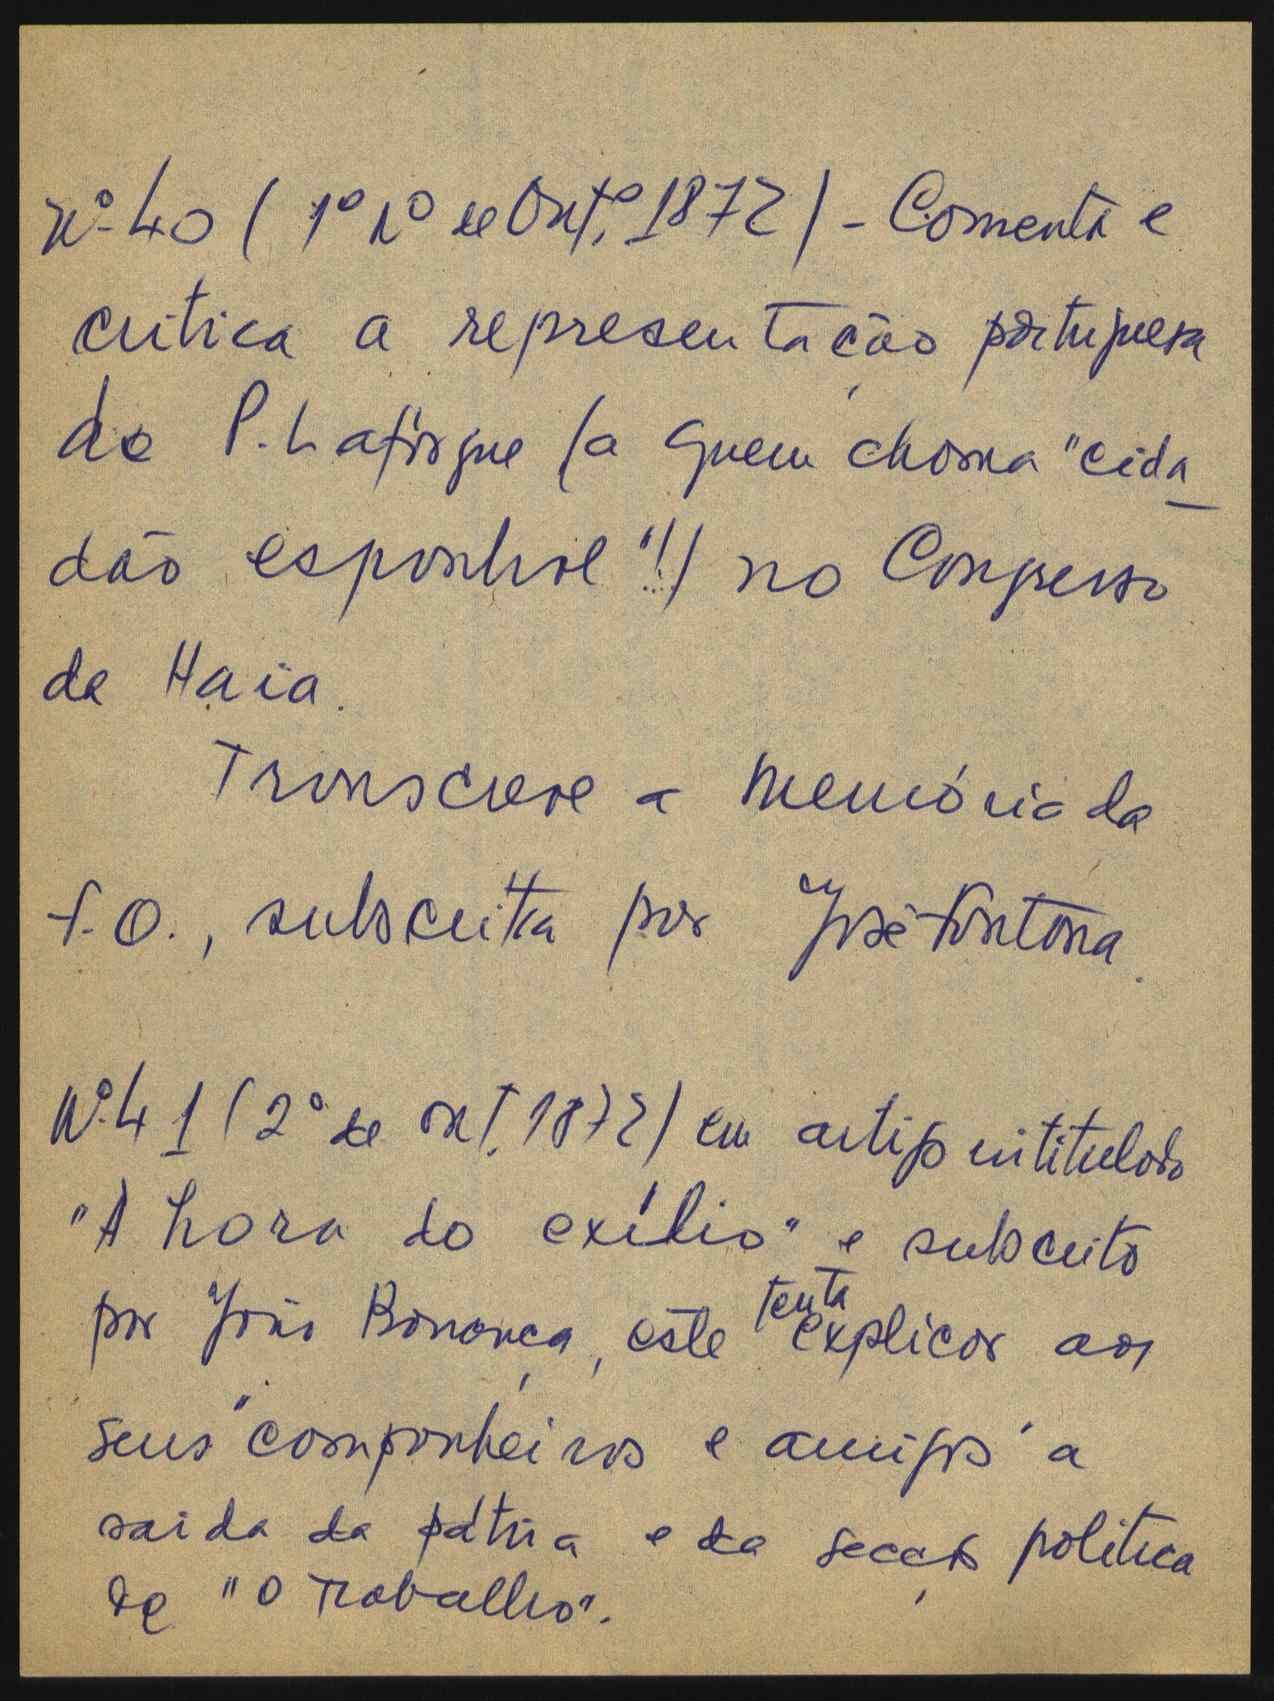 Nº 40 (1º nº de Outº. 1872) - Comenta e
critica a representação portuguesa
de P. Lafargue (a quem chama "cida_
dão espanhol"!!) no Congresso
de Haia.
Transcreve a memória da
F. O., subscritta por José Fontana.
Nº 41 (2º de out. 1872) em artigo intitulado
"A hora do exílio" e subscrito
por João Bonança, este tenta explicar aos
seus "companheiros e amigos" a
saida da pátria e da secção politica
de "O Trabalho".